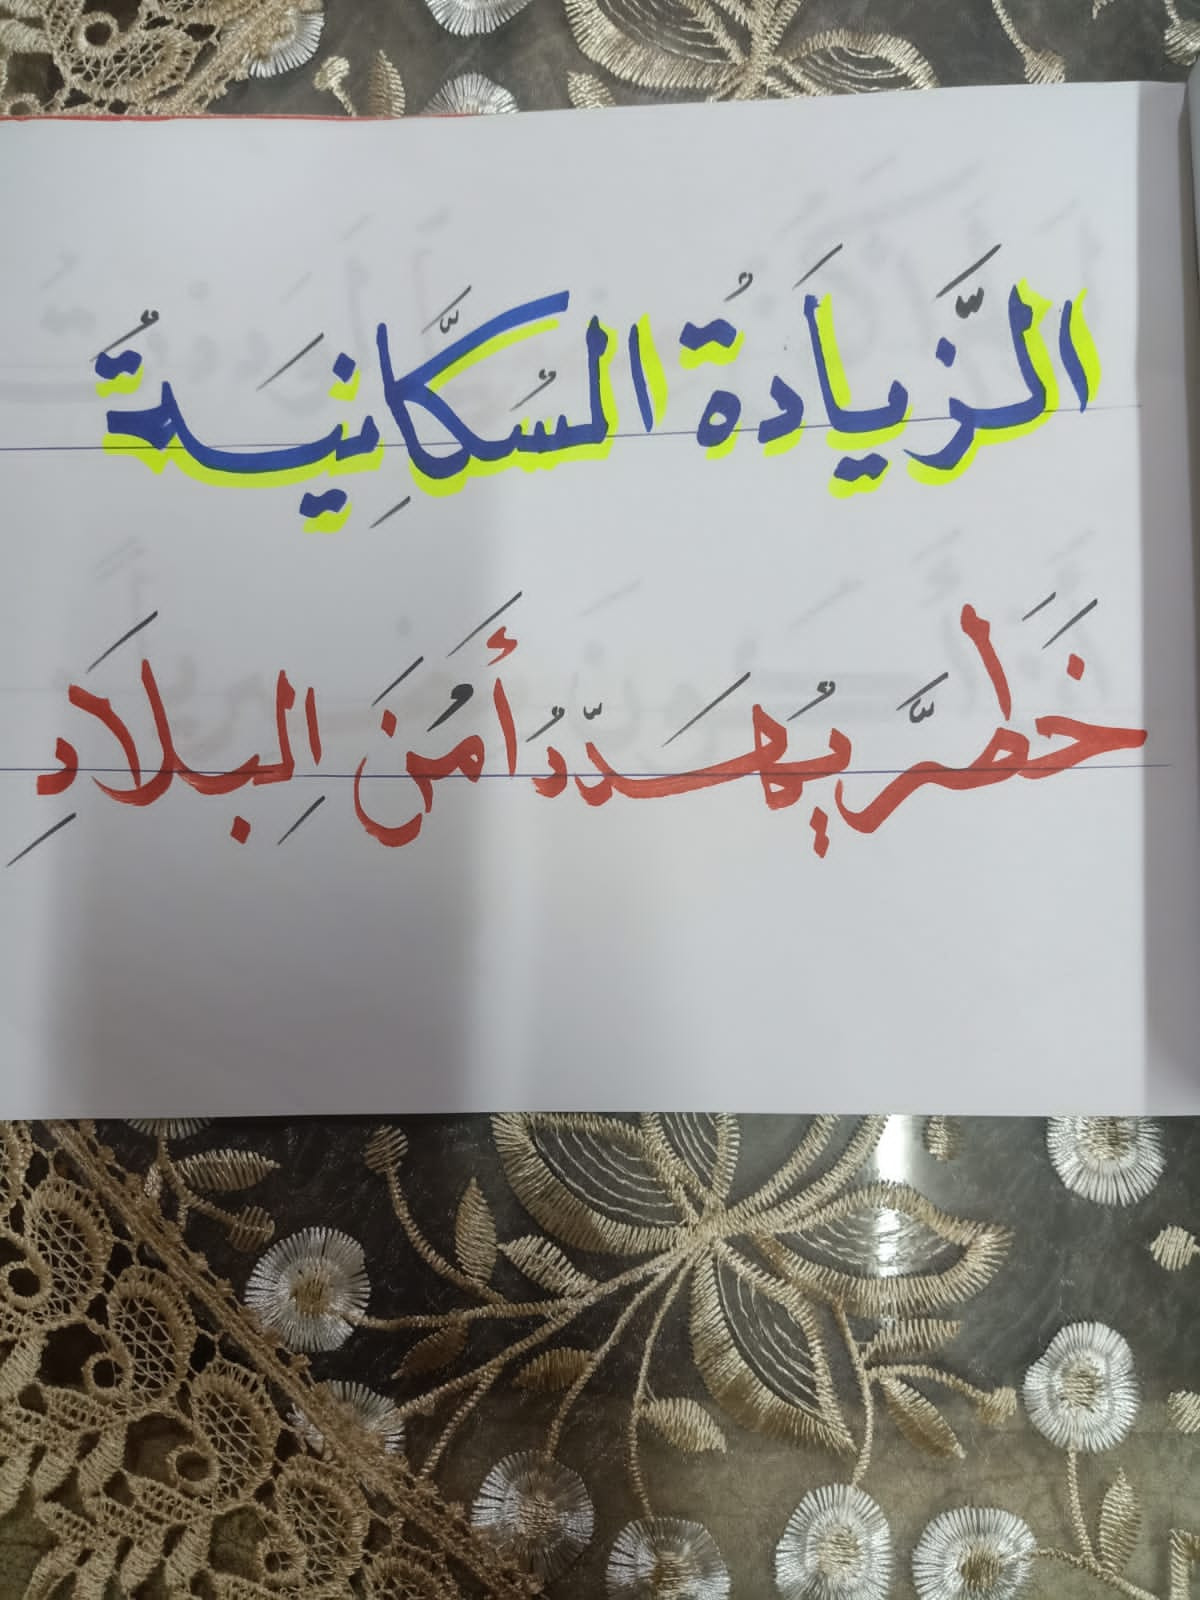 الزَّيَادَةُ السُّكَّانِيَةُ
خَطَرٌ يُهَدِّدُ أَمْنَ البِلَادِ